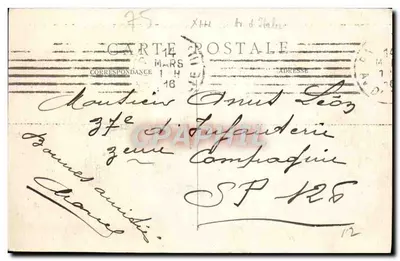 75
CARTE POSTALE
CORRESPONDANCE
ADRESSE
14
MARS
1 H
16
Monsieur Léon
37e d'Infanterie
3eme Compagnie
SP 126
Bonnes amitiés
12